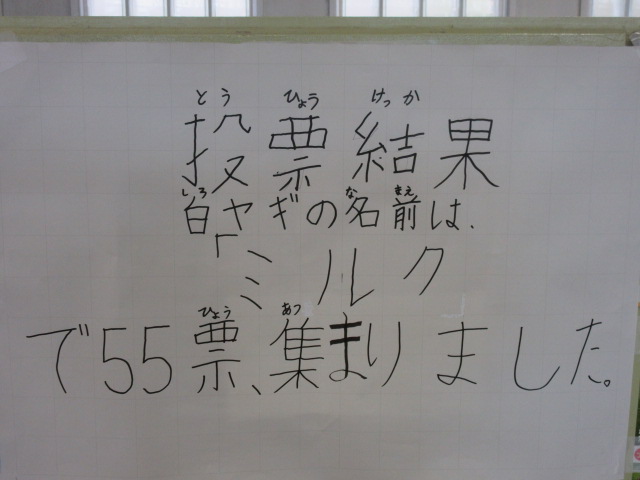 とう ひょう けっ か
投票結果
しろ な まえ
白ヤギの名前は、
「ミルク
ひょう あつ
で55票、集まりました。